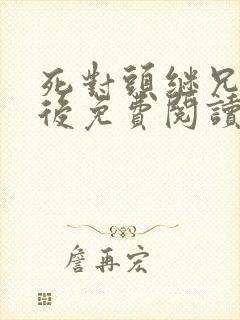 死對頭繼兄
後免費閱讀
詹再宏